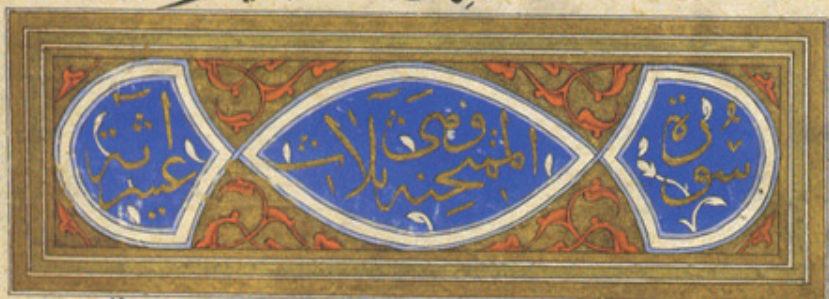 سورة
الممتحنه وهي ثلاث
عشر اية